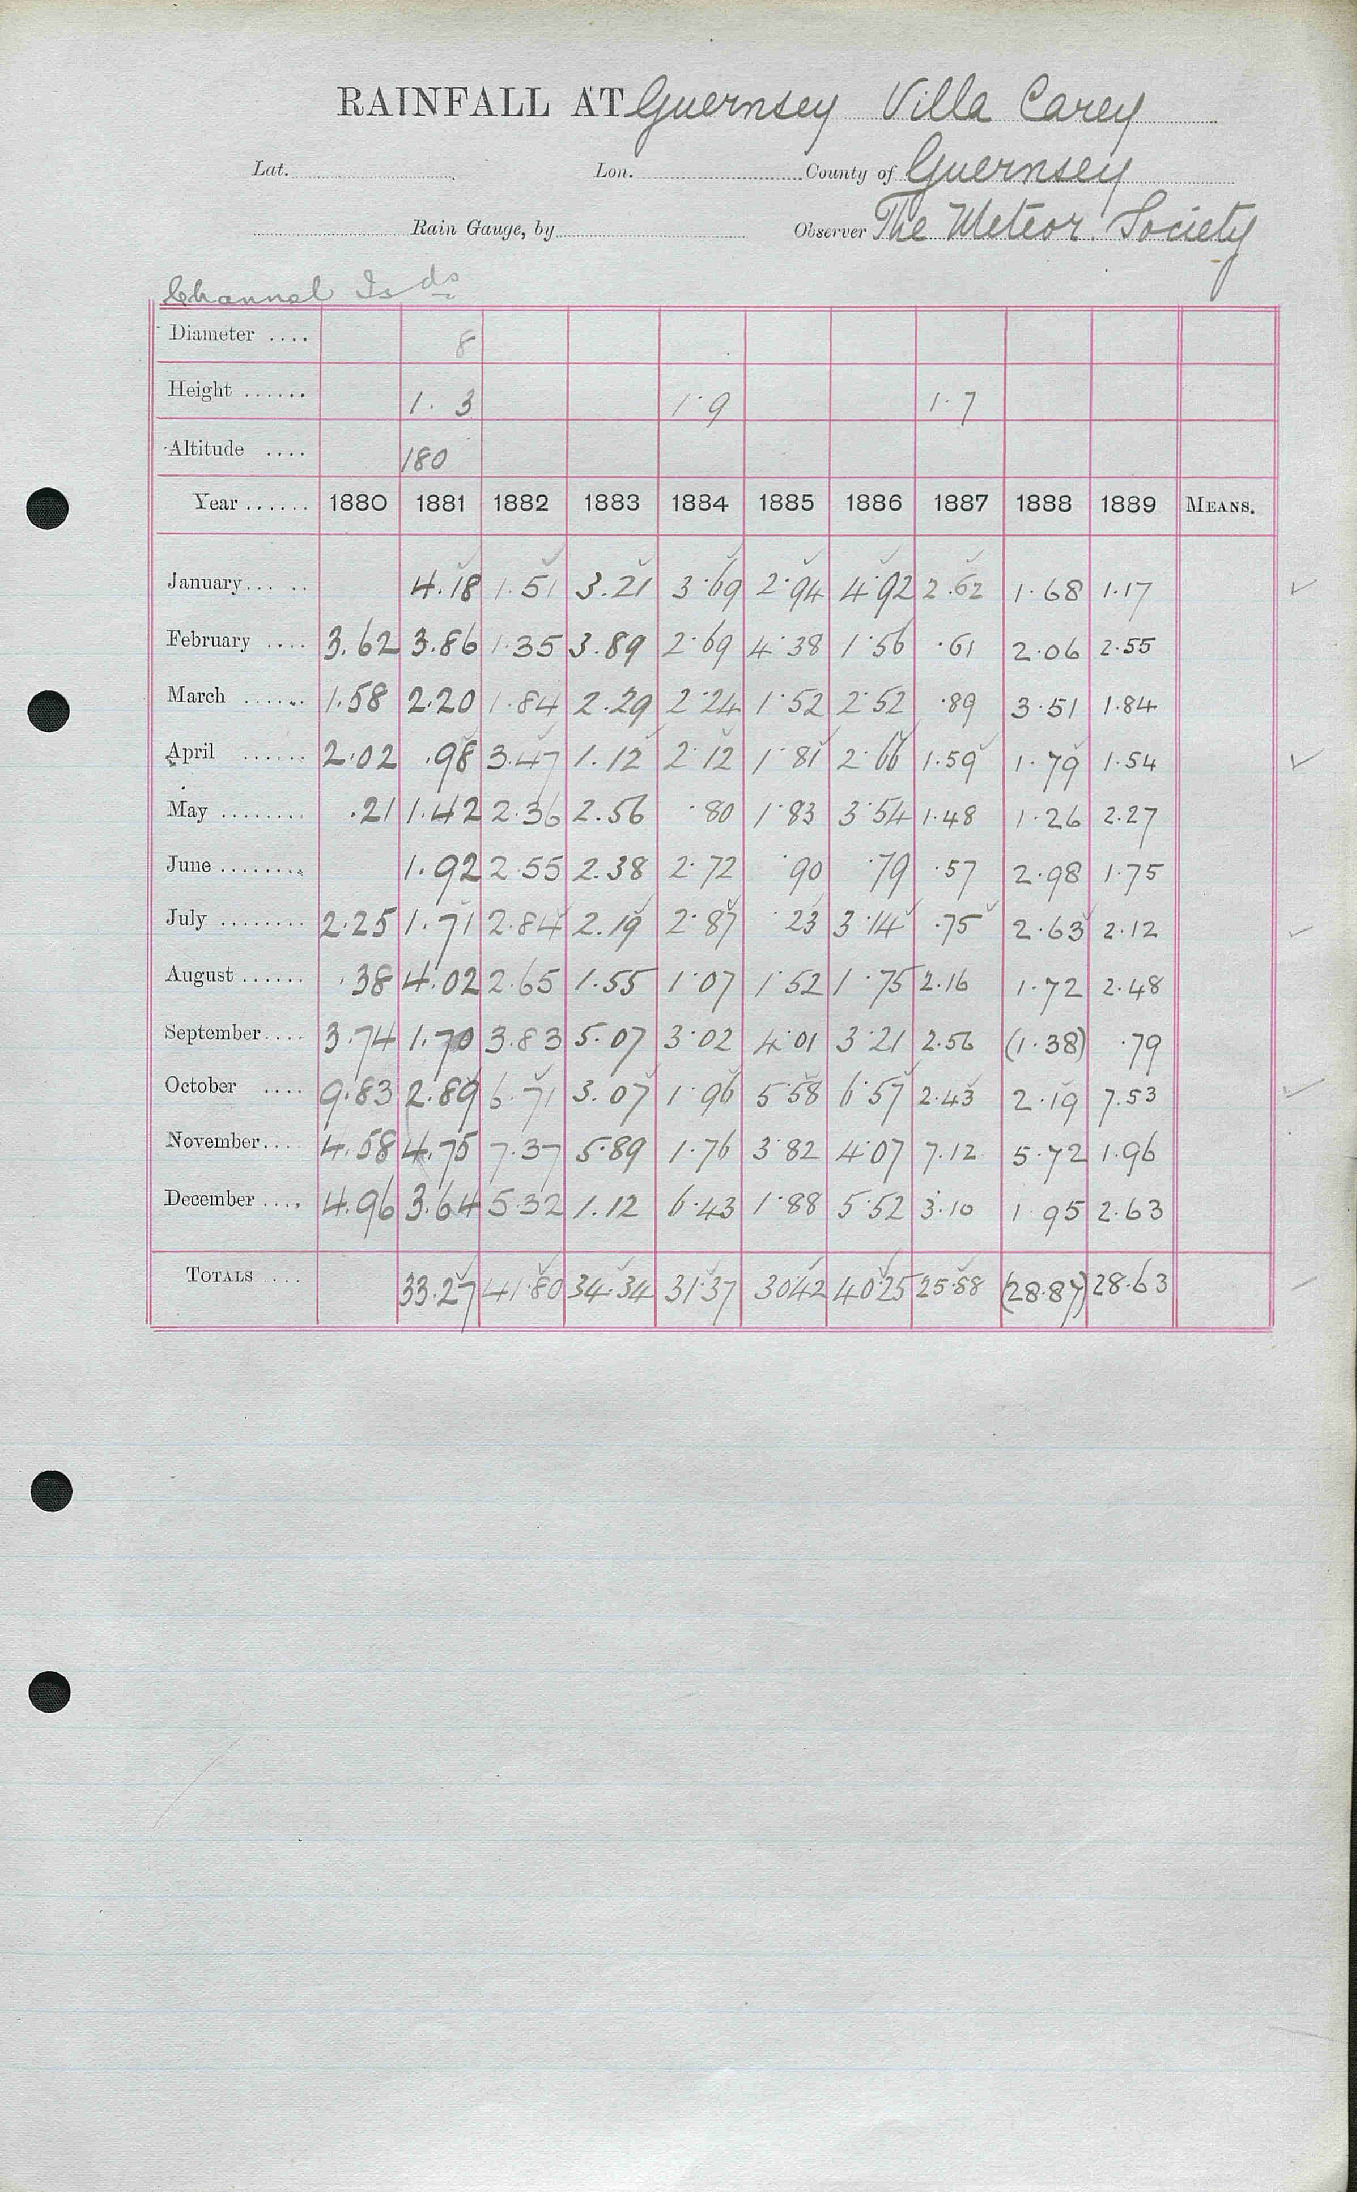 RAINFALL AT Guernsey Villa Carey
Lat. Lon. County of Guernsey
Rain Gauge, by Observer The Meteor. Society
Channel Isds
Diameter .... 8
Height ...... 1.3 1.9 1.7
Altitude .... 180
Year ...... 1880 1881 1882 1883 1884 1885 1886 1887 1888 1889 MEANS.
January... .. 4.18 1.51 3.21 3.69 2.94 4.92 2.62 1.68 1.17
February .... 3.62 3.86 1.35 3.89 2.69 4.38 1.56 .61 2.06 2.55
March ...... 1.58 2.20 1.84 2.29 2.24 1.52 2.52 .89 3.51 1.84
April ...... 2.02 .98 3.47 1.12 2.12 1.81 2.66 1.59 1.79 1.54
May ........ .21 1.42 2.36 2.56 .80 1.83 3.54 1.48 1.26 2.27
June ........ 1.92 2.55 2.38 2.72 .90 .79 .57 2.98 1.75
July ........ 2.25 1.71 2.84 2.19 2.87 .23 3.14 .75 2.63 2.12
August ...... .38 4.02 2.65 1.55 1.07 1.52 1.75 2.16 1.72 2.48
September.... 3.74 1.70 3.83 5.07 3.02 4.01 3.21 2.56 (1.38) .79
October .... 9.83 2.89 6.71 3.07 1.96 5.58 6.57 2.43 2.19 7.53
November.... 4.58 4.75 7.37 5.89 1.76 3.82 4.07 7.12 5.72 1.96
December .... 4.96 3.64 5.32 1.12 6.43 1.88 5.52 3.10 1.95 2.63
TOTALS .... 33.27 41.80 34.34 31.37 30.42 40.25 25.88 (28.87) 28.63